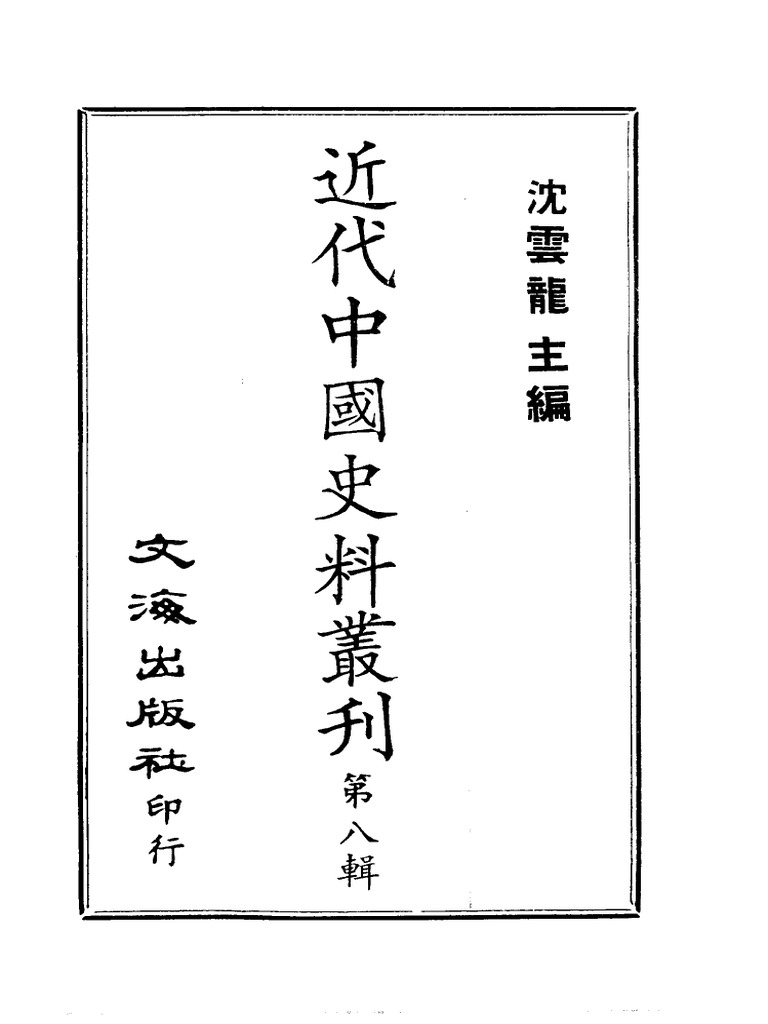 沈雲龍 主編
近代中國史料叢刊第八輯
文海出版社印行